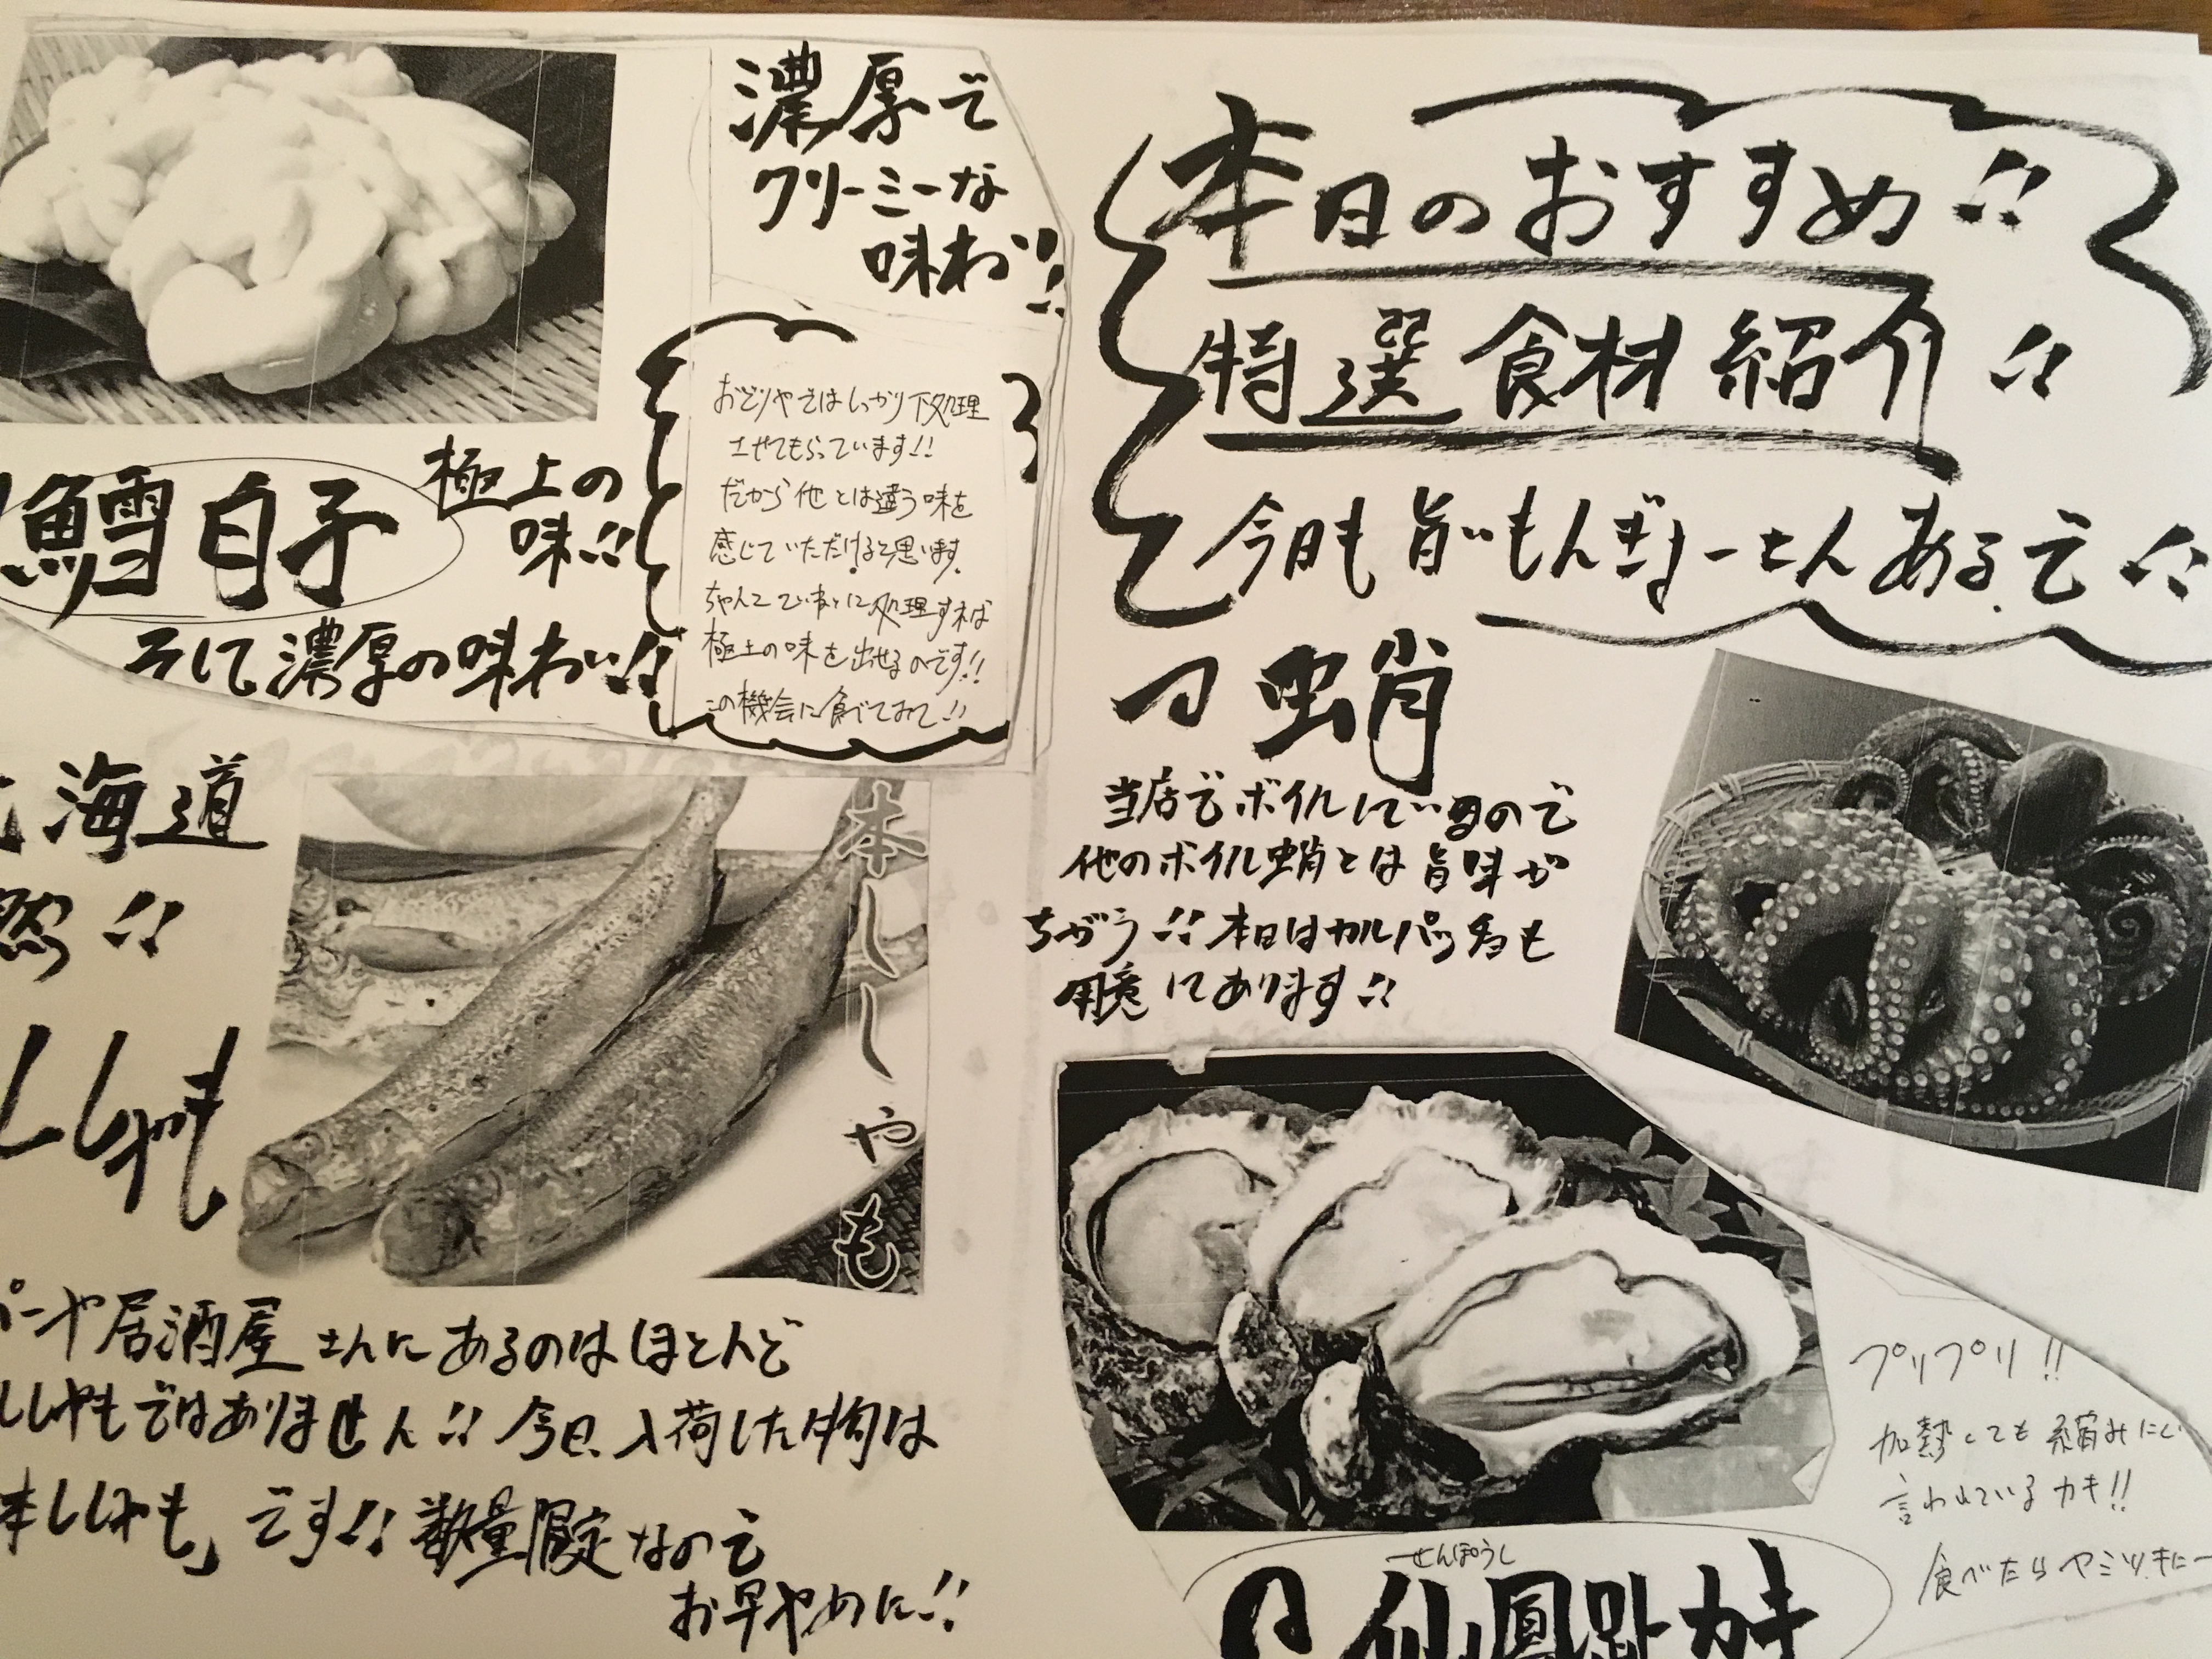 本日のおすすめ!!
特選食材紹介!!
今日も旨いもんぎょーさんあるで!!
蛸
当店でボイルしているので
他のボイル蛸とは旨味が
ちがう!!本日はカルパッチョも
用意してあります!!
プリプリ!!
加熱しても縮みにく
言われているカキ!!
食べたらヤミツキに
せんぽうし
仙鳳趾カキ
濃厚で
クリーミーな
味わい!!
鱈白子
極上の
味!!
そして濃厚の味わい!!
おどりやではしっかり下処理
させてもらっています!!
だから他とは違う味を
感じていただけると思います。
ちゃんとていねいに処理すれば
極上の味を出せるのです!!
この機会に食べてみて!!
海道
!!
ししゃも
本ししゃも
パーや居酒屋さんにあるのはほとんど
ししゃもではありません!!今日、入荷した物は
本ししゃも」です!!数量限定なので
お早やめに!!